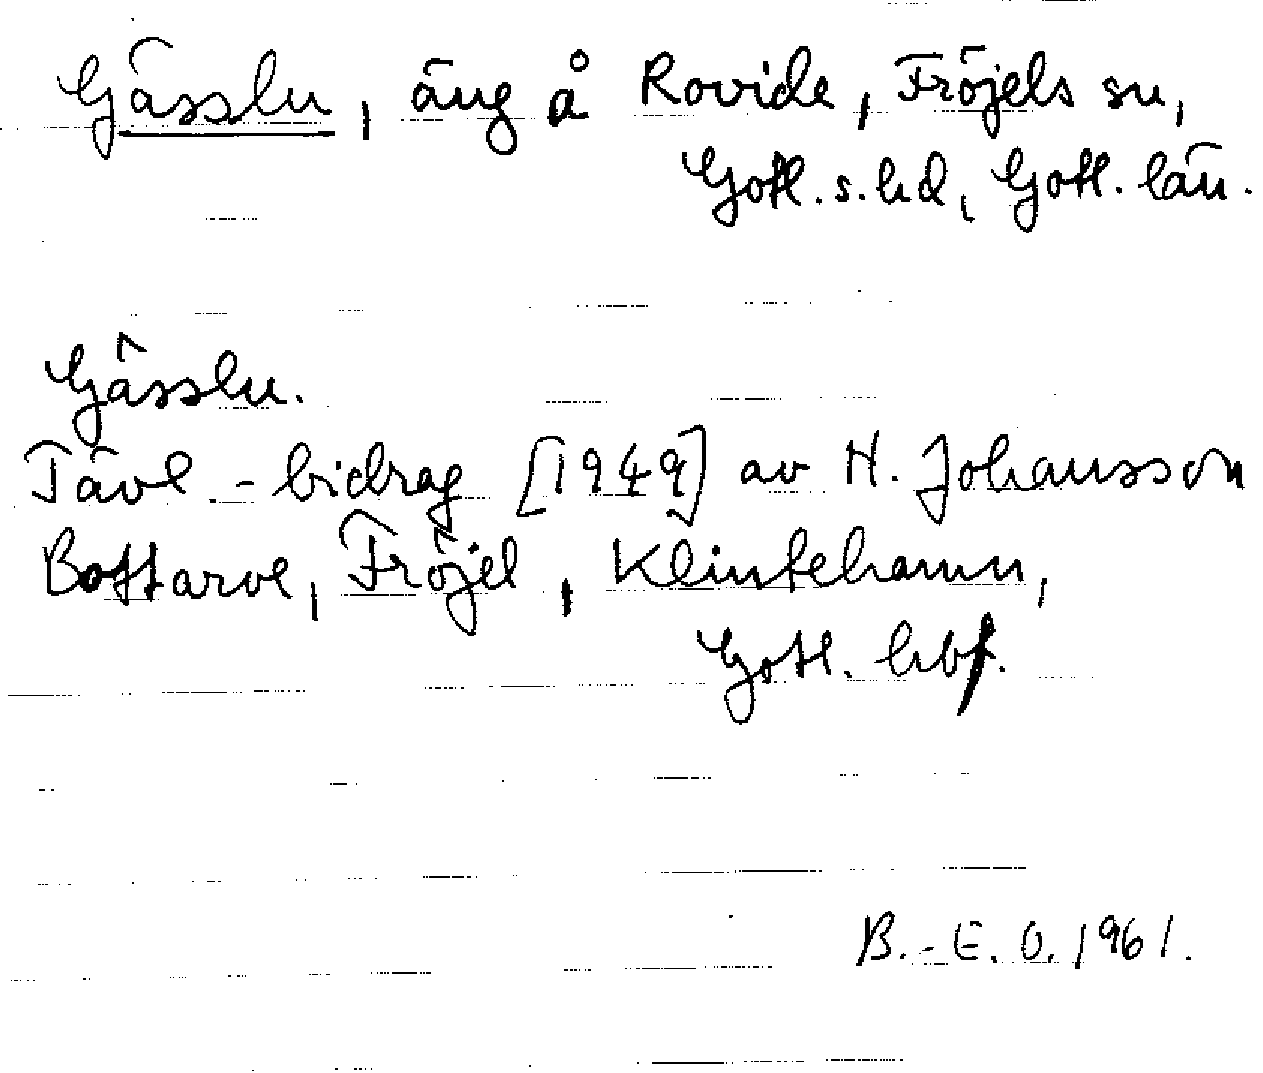 Gässlu, äng å Rovide, Fröjels sn,
Gotl. s. hd, Gotl. län.
Gâsslu.
Tävl.-bidrag [1949] av H. Johansson
Bottarve, Fröjel, Klintehamn,
Gotl. hbf.
B.-E. O. 1961.